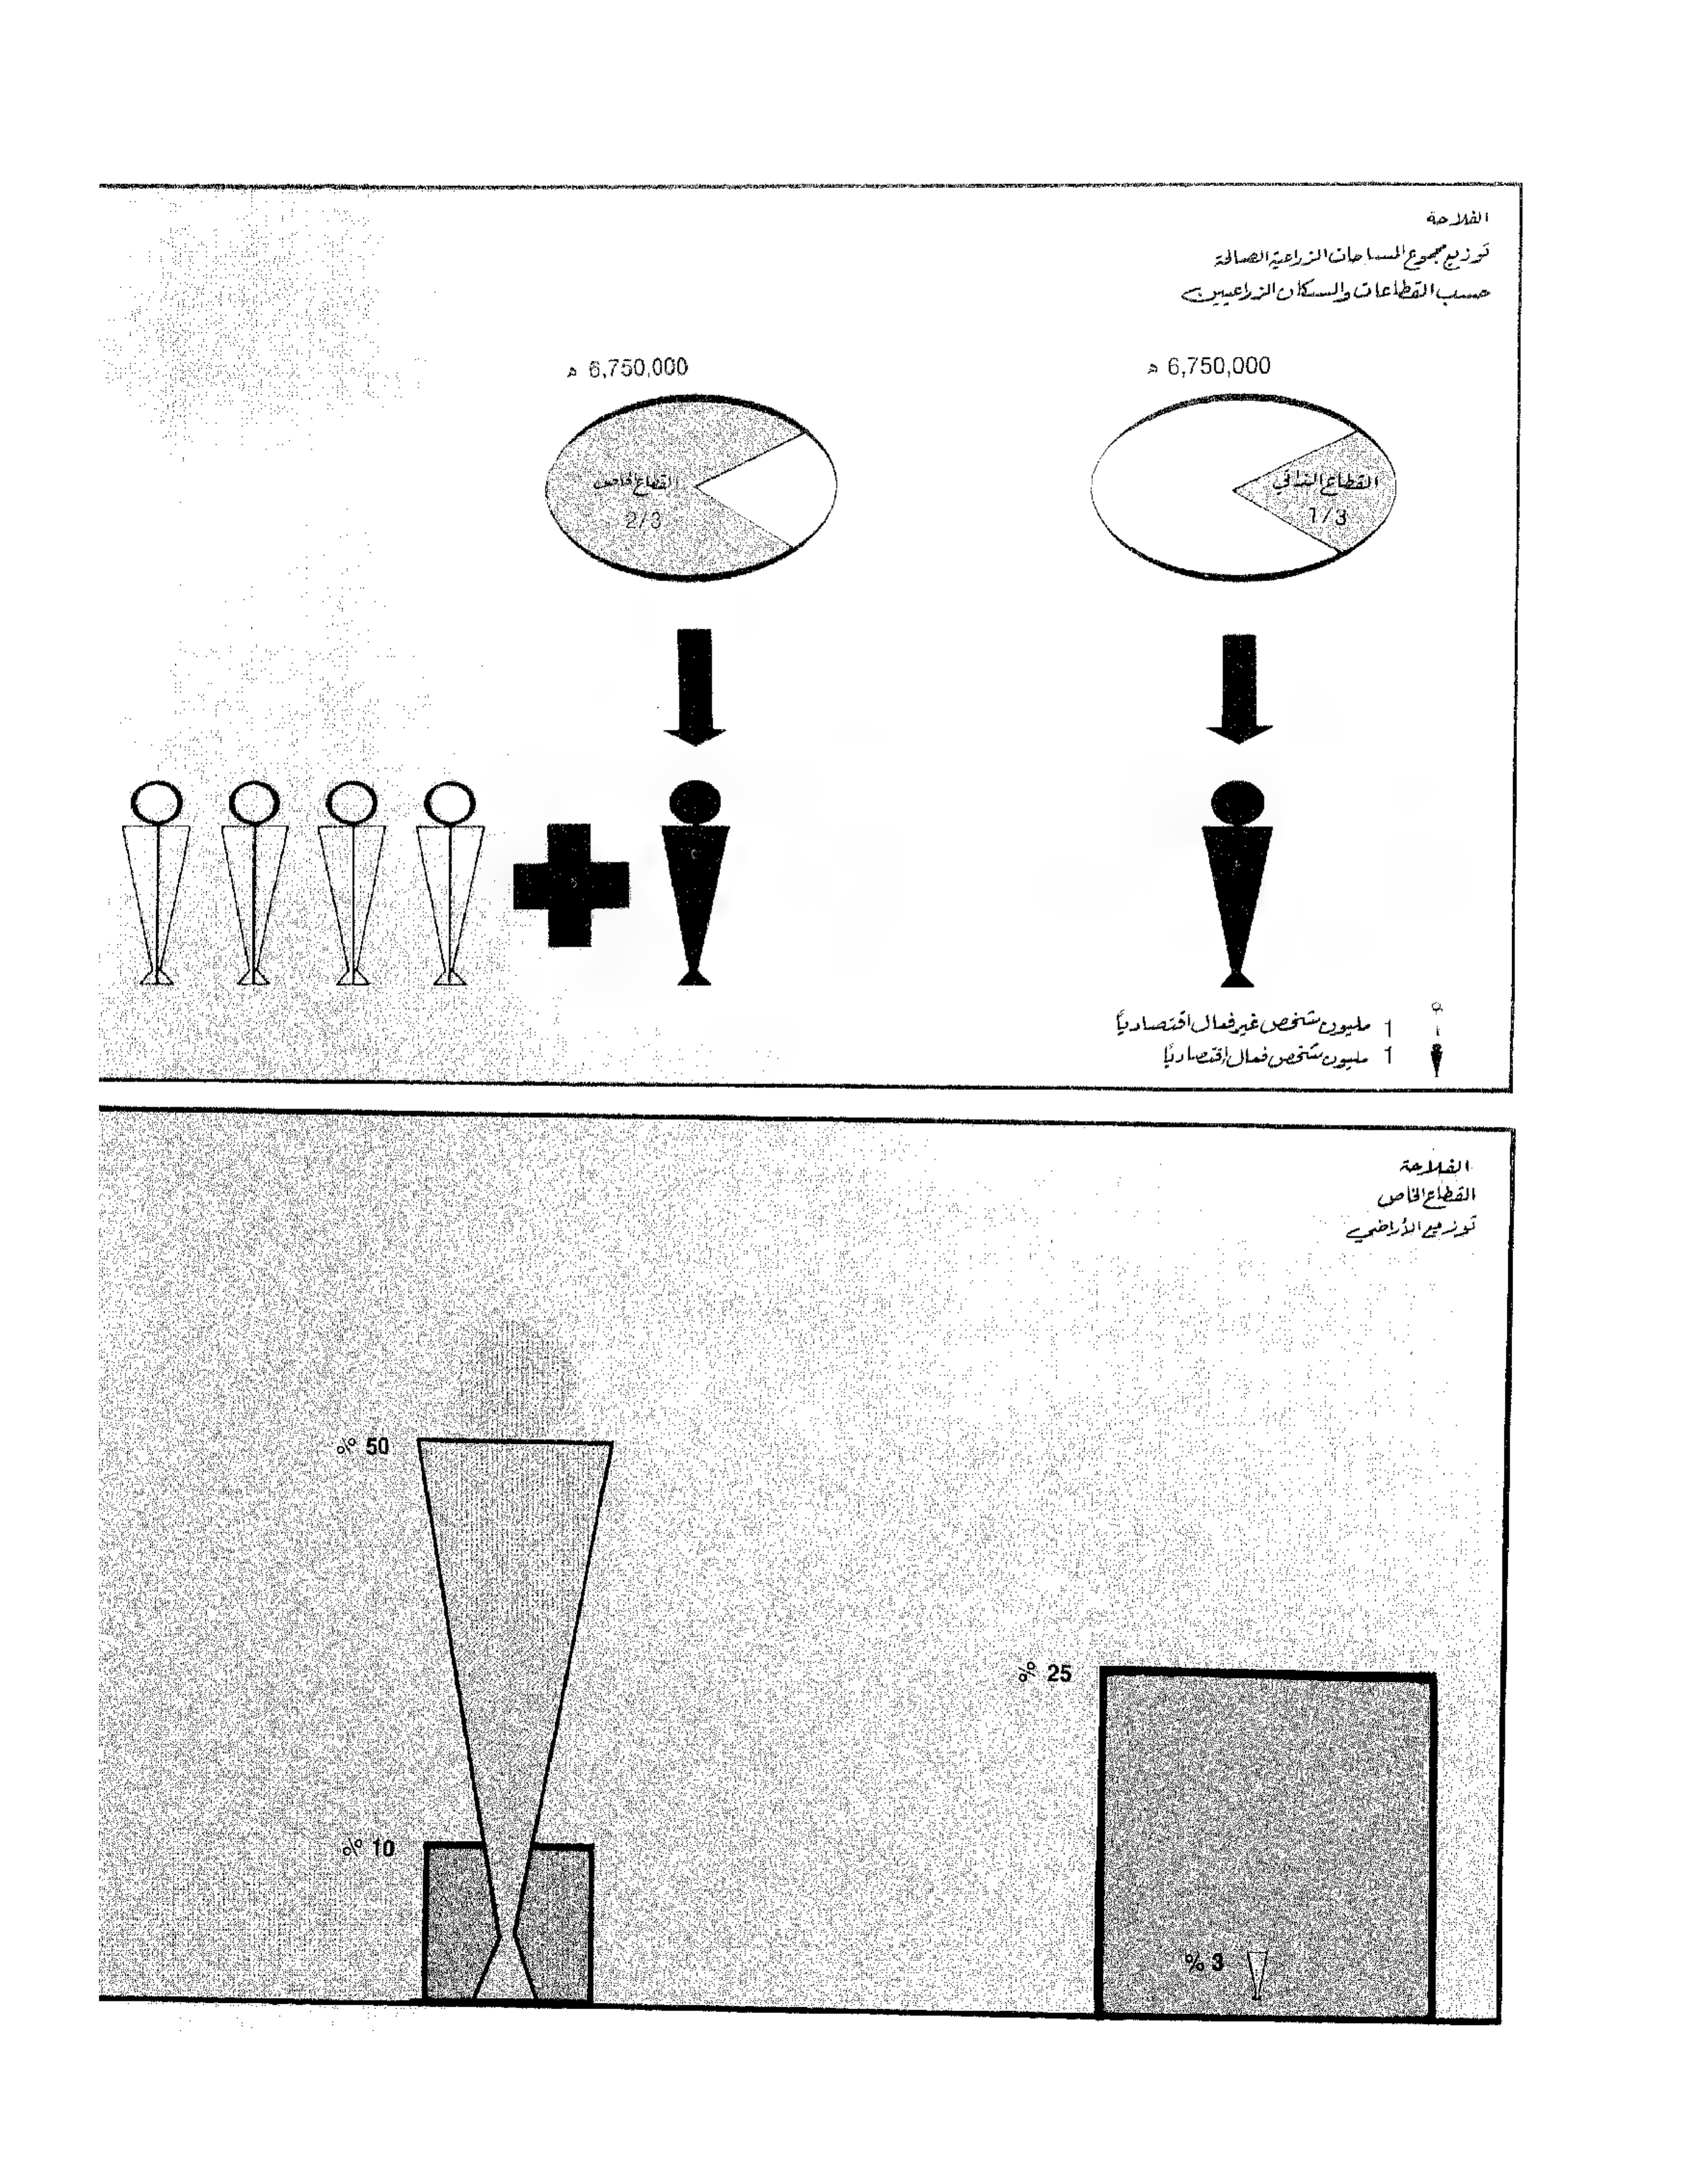 الفلاحة
توزيع مجموع المساحات الزراعية الصالحة
حسب القطاعات والسكان الزراعيين
6,750,000 ه
6,750,000 ه
القطاع الذاتي
1/3
القطاع الخاص
2/3
1 مليون شخص غير فعال اقتصادياً
1 مليون شخص فعال اقتصادياً
الفلاحة
القطاع الخاص
توزيع الأراضي
50 %
25 %
10 %
3 %